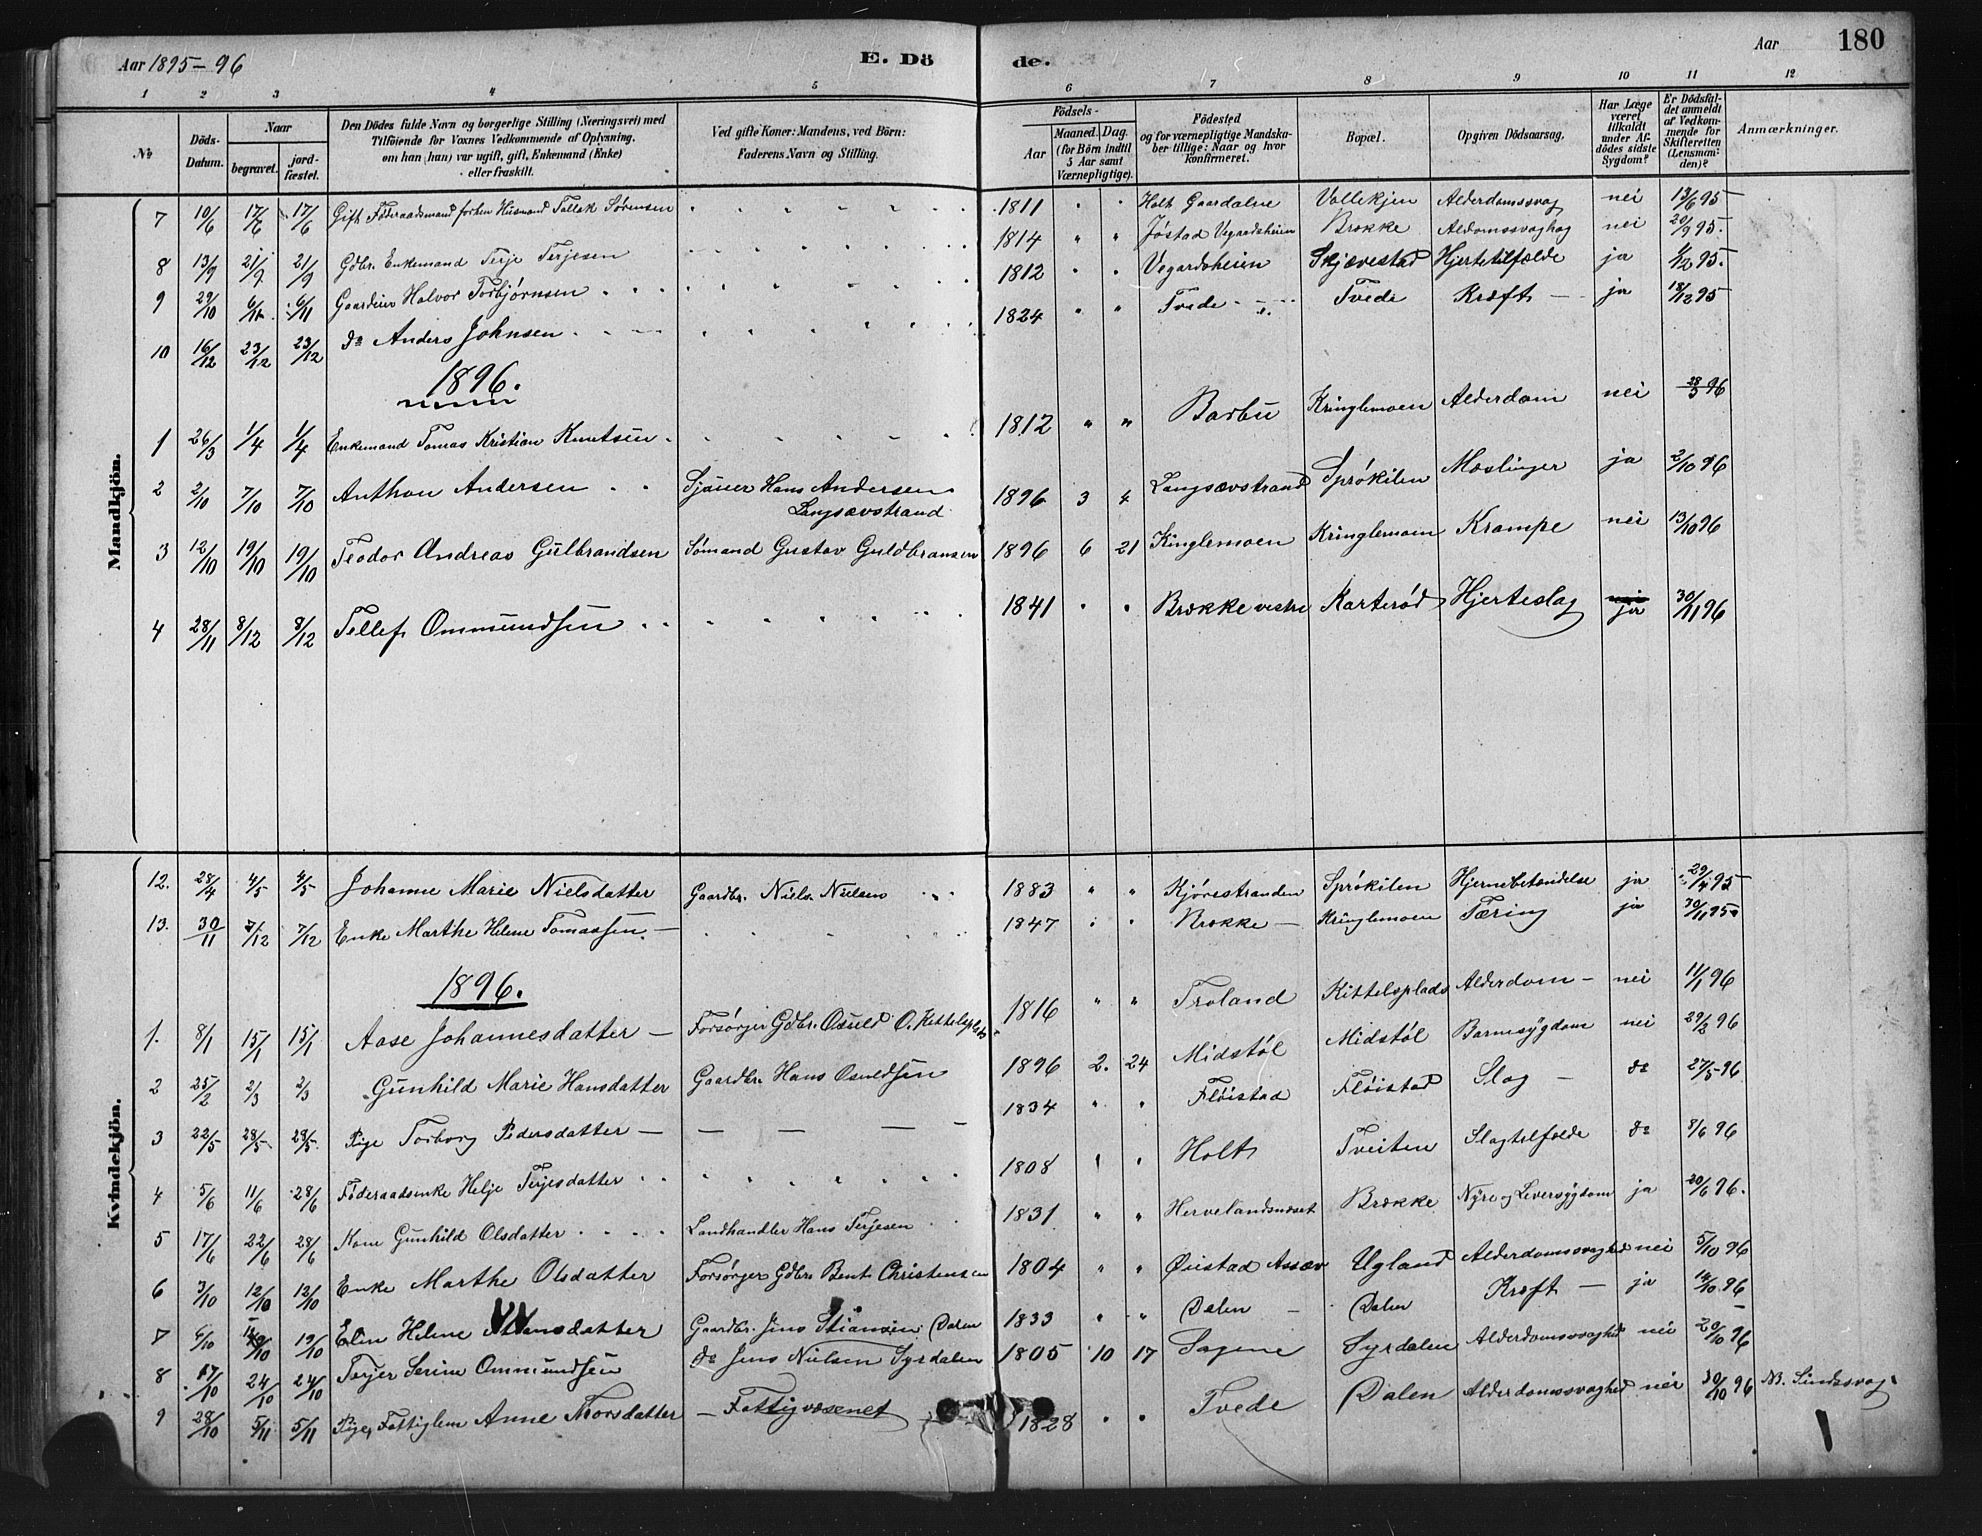 Aar 1895-96 E. Dö de. Aar 180
1 2 3 4 5 6 7 8 9 10 11 12
№
Döds-Datum.
Naar
begravet.
jord-fæstet.
Den Dödes fulde Navn og borgerlige Stilling (Næringsvei) med
Tilföiende for Voxnes Vedkommende af Oplysning,
om han (hun) var ugift, gift, Enkemand (Enke)
eller fraskilt.
Ved gifte Koner: Mandens, ved Börn:
Faderens Navn og Stilling.
Födsels-
Aar
Maaned. Dag.
(for Börn indtil
5 Aar samt
Værnepligtige).
Födested
og for værnepligtige Mandska-
ber tillige: Naar og hvor
konfirmeret.
Bopæl.
Opgiven Dödsaarsag.
Har Læge
været
tilkaldt
under Af-
dödes sidste
Sygdom?
Er Dödsfal-
det anmeldt
af Vedkom-
mende for
Skifteretten
(Lensman-
den)?
Anmærkninger.
Mandkjön.
7 10/6 17/6 17/6 Gift Föderaadsmand forhen Husmand Tallak Sørensen 1811 Holt Gaardalne Vollekjen Alderdomssvag nei 13/6 95
8 13/9 21/9 21/9 Gdbr. Enkemand Terje Terjesen 1814 Jøstad Vegaardsheien Brække nei 20/9 95.
9 29/10 6/11 6/11 Gaardeier Halvor Torbjørnsen 1812 Vegardsheien Skjævestad Hjertetilfælde ja
10 16/12 23/12 23/12 do Anders Johnsen 1824 Tvede Tvede Kræft ja 18/12 95
1896.
1 26/3 1/4 1/4 Enkemand Tomas Kristian Knutsen 1812 " " Barbu Kringlemoen Alderdom nei 28/3 96
2 2/10 7/10 7/10 Anthon Andersen Sjauer Hans Andersen 1896 3 4 Langsævstrand Sprøkilen Mæslinger ja 2/10 96
Langsævstrand
3 12/10 19/10 19/10 Teodor Andreas Gulbrandsen Sømand Gustav Guldbransen 1896 6 21 Kinglemoen Kringlemoen Krampe nei 13/10 96
4 28/11 8/12 8/12 Tellef Ommundsen 1841 Brække vestre Karterød Hjerteslag ja 30/11 96
Kvindekjön.
12. 28/4 4/5 4/5 Johanne Marie Nielsdatter Gaardbr. Niels Nielsen 1883 " " Kjørestranden Sprøkilen Hjernebetændelse ja 29/4 95
13. 30/11 7/12 7/12 Enke Marthe Helene Tomassen 1847 Brække Kringlemoen Tæring ja 30/11 95
1896.
1. 8/1 15/1 15/1 Aase Johannesdatter Forsørger Gdbr. Osuld O. Kittelsplads 1816 " " Froland Kittelsplads Alderdom nei 11/1 96
2 25/2 2/3 2/3 Gunhild Marie Hansdatter Gaardbr. Hans Osuldsen 1896 2. 24 Midstøl Midstøl Barnesygdom nei 29/2 96
3 22/5 28/5 28/5 Pige Torborg Pedersdatter 1834 Fløistad Fløistad Slag do 27/5 96
4 5/6 11/6 28/6 Føderaadsenke Helje Terjesdatter 1808 Holt Tveiten Slagtilfælde do 8/6 96
5 17/6 22/6 28/6 Kone Gunhild Olsdatter Landhandler Hans Terjesen 1831 " " Hervelandsnæset Brække Nyre og Leversygdom ja 20/6 96.
6 3/10 12/10 12/10 Enke Marthe Olsdatter Forsørger Gdbr. Bent Christensen 1804 " " Øiestad Assæv Ugland Alderdomssvaghed nei 5/10 96
7 6/10 19/10 Elen Helene Gaardbr. Jens Stiansen Dalen 1833 " " Dalen Dalen Kræft ja 14/10 96
8 17/10 24/10 24/10 Terjer Serine Ommundsen do Jens Nielsen Syrdalen 1805 10 17 Sagene Syrdalen Alderdomssvaghed nei 20/10 96
9 28/10 5/11 5/11 Pige, Fattiglem Anne Thorsdatter Fattigvæsenet 1828 Tvede Dalen Alderdomssvaghed nei 30/10 96 NB. Sindssvag.